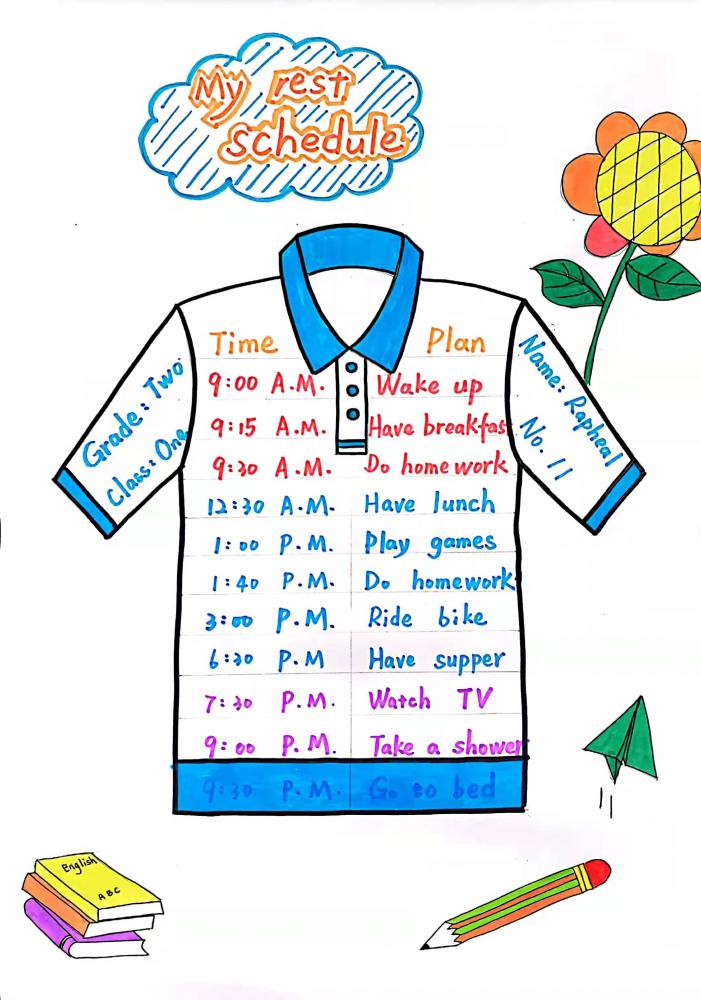 My rest
schedule
Time Plan
9:00 A.M. Wake up
9:15 A.M. Have breakfast
9:30 A.M. Do homework
12:30 A.M. Have lunch
1:00 P.M. Play games
1:40 P.M. Do homework
3:00 P.M. Ride bike
6:30 P.M Have supper
7:30 P.M. Watch TV
9:00 P.M. Take a shower
9:30 P.M. Go to bed
Grade: Two
Class: One
Name: Rapheal
No. 11
English
ABC